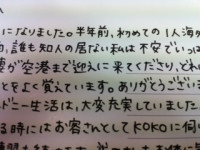 になりました。半年前、初めての1人海外
、誰も知人の居ない私は不安でいっぱ
が空港まで迎えに来てくださり、とれ
とをよく覚えています。ありがとうござい
ドニー生活は、大変充実していました
る時にはお客さんとしてKOKOに何